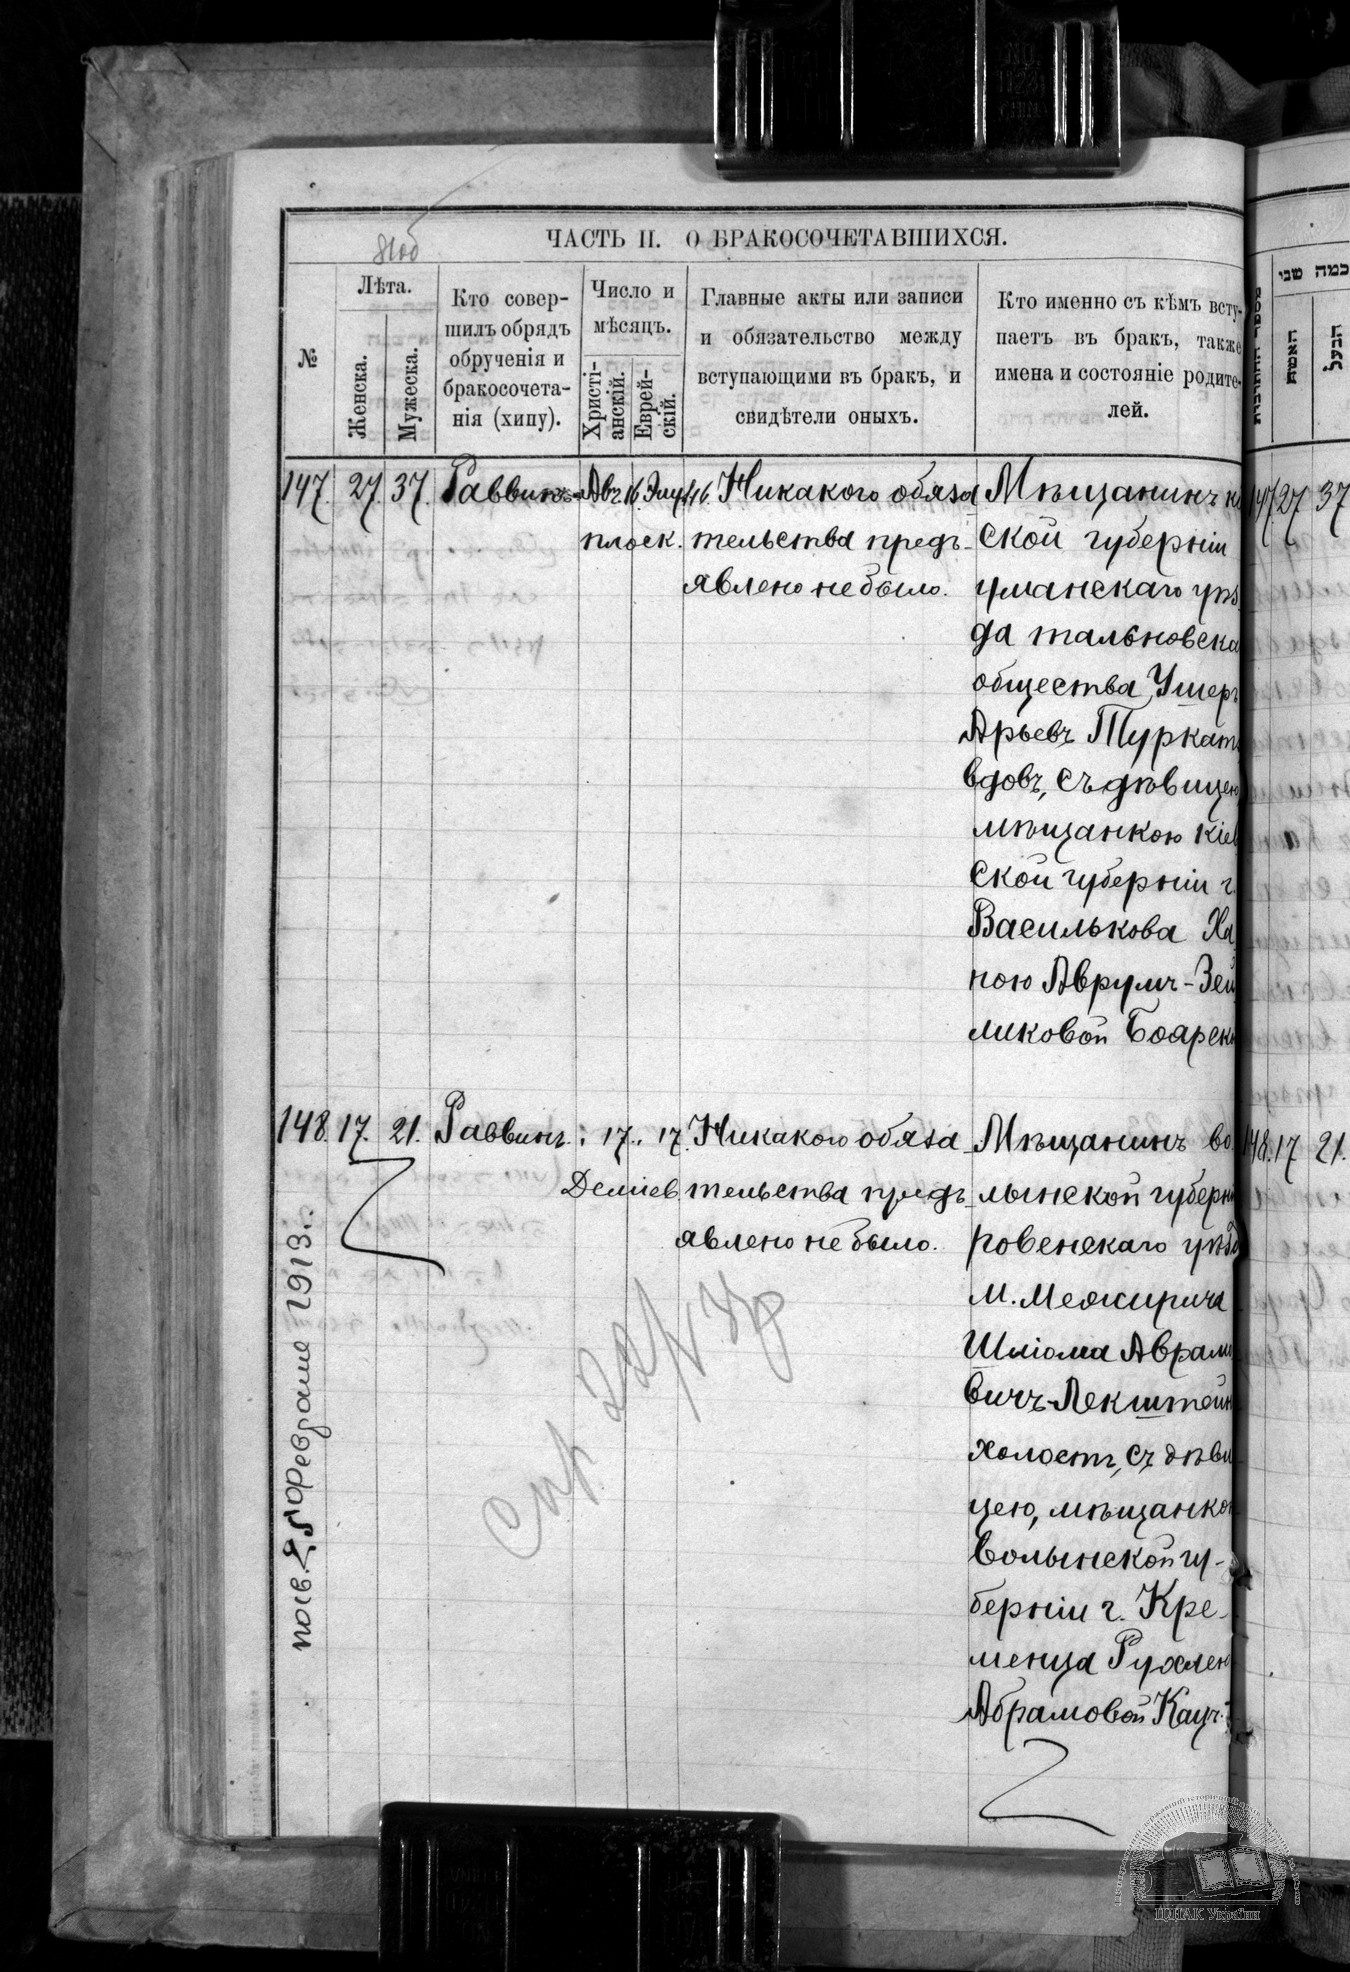 ЧАСТЬ II. О БРАКОСОЧЕТАВШИХСЯ.
№
Лѣта.
Женска.
Мужеска.
Кто совер-
шилъ обрядъ
обрученія и
бракосочета-
нія (хипу).
Число и
мѣсяцъ.
Христі-
анскій.
Еврей-
скій.
Главные акты или записи
и обязательство между
вступающими въ бракъ, и
свидѣтели оныхъ.
Кто именно съ кѣмъ всту-
паетъ въ бракъ, также
имена и состояніе родите-
лей.
147. 27. 37. Раввинъ Авг. 16. 16. Никакого обяза
плоск. тельства предъ-
явлено не было.
Мѣщанинъ
ской губерніи
уманскаго уѣз
да тальновска
общества Ушеръ
Арьевъ Туркат
вдовъ, съ дѣвицею
мѣщанкою кіев
ской губерніи г.
Василькова Ха
ною Аврумъ-Зей
ликовой Боарск
148. 17. 21. Раввинъ. 17. 17. Никакого обяза
Деміев. тельства предъ-
явлено не было.
Мѣщанинъ во
лынской губерні
ровенскаго уѣзд
м. Межирича
Шліома Абрамо
вичъ-Лекштейн
холостъ, съ дѣви
цею, мѣщанкою
Волынской гу-
берніи г. Кре-
менца Рухлею
Абрамовой Кацъ.
Февраля 1913 г.
מספר
כמה שני
האשה
הבעל
147 27 37
148. 17 21.
ЦДІАК України